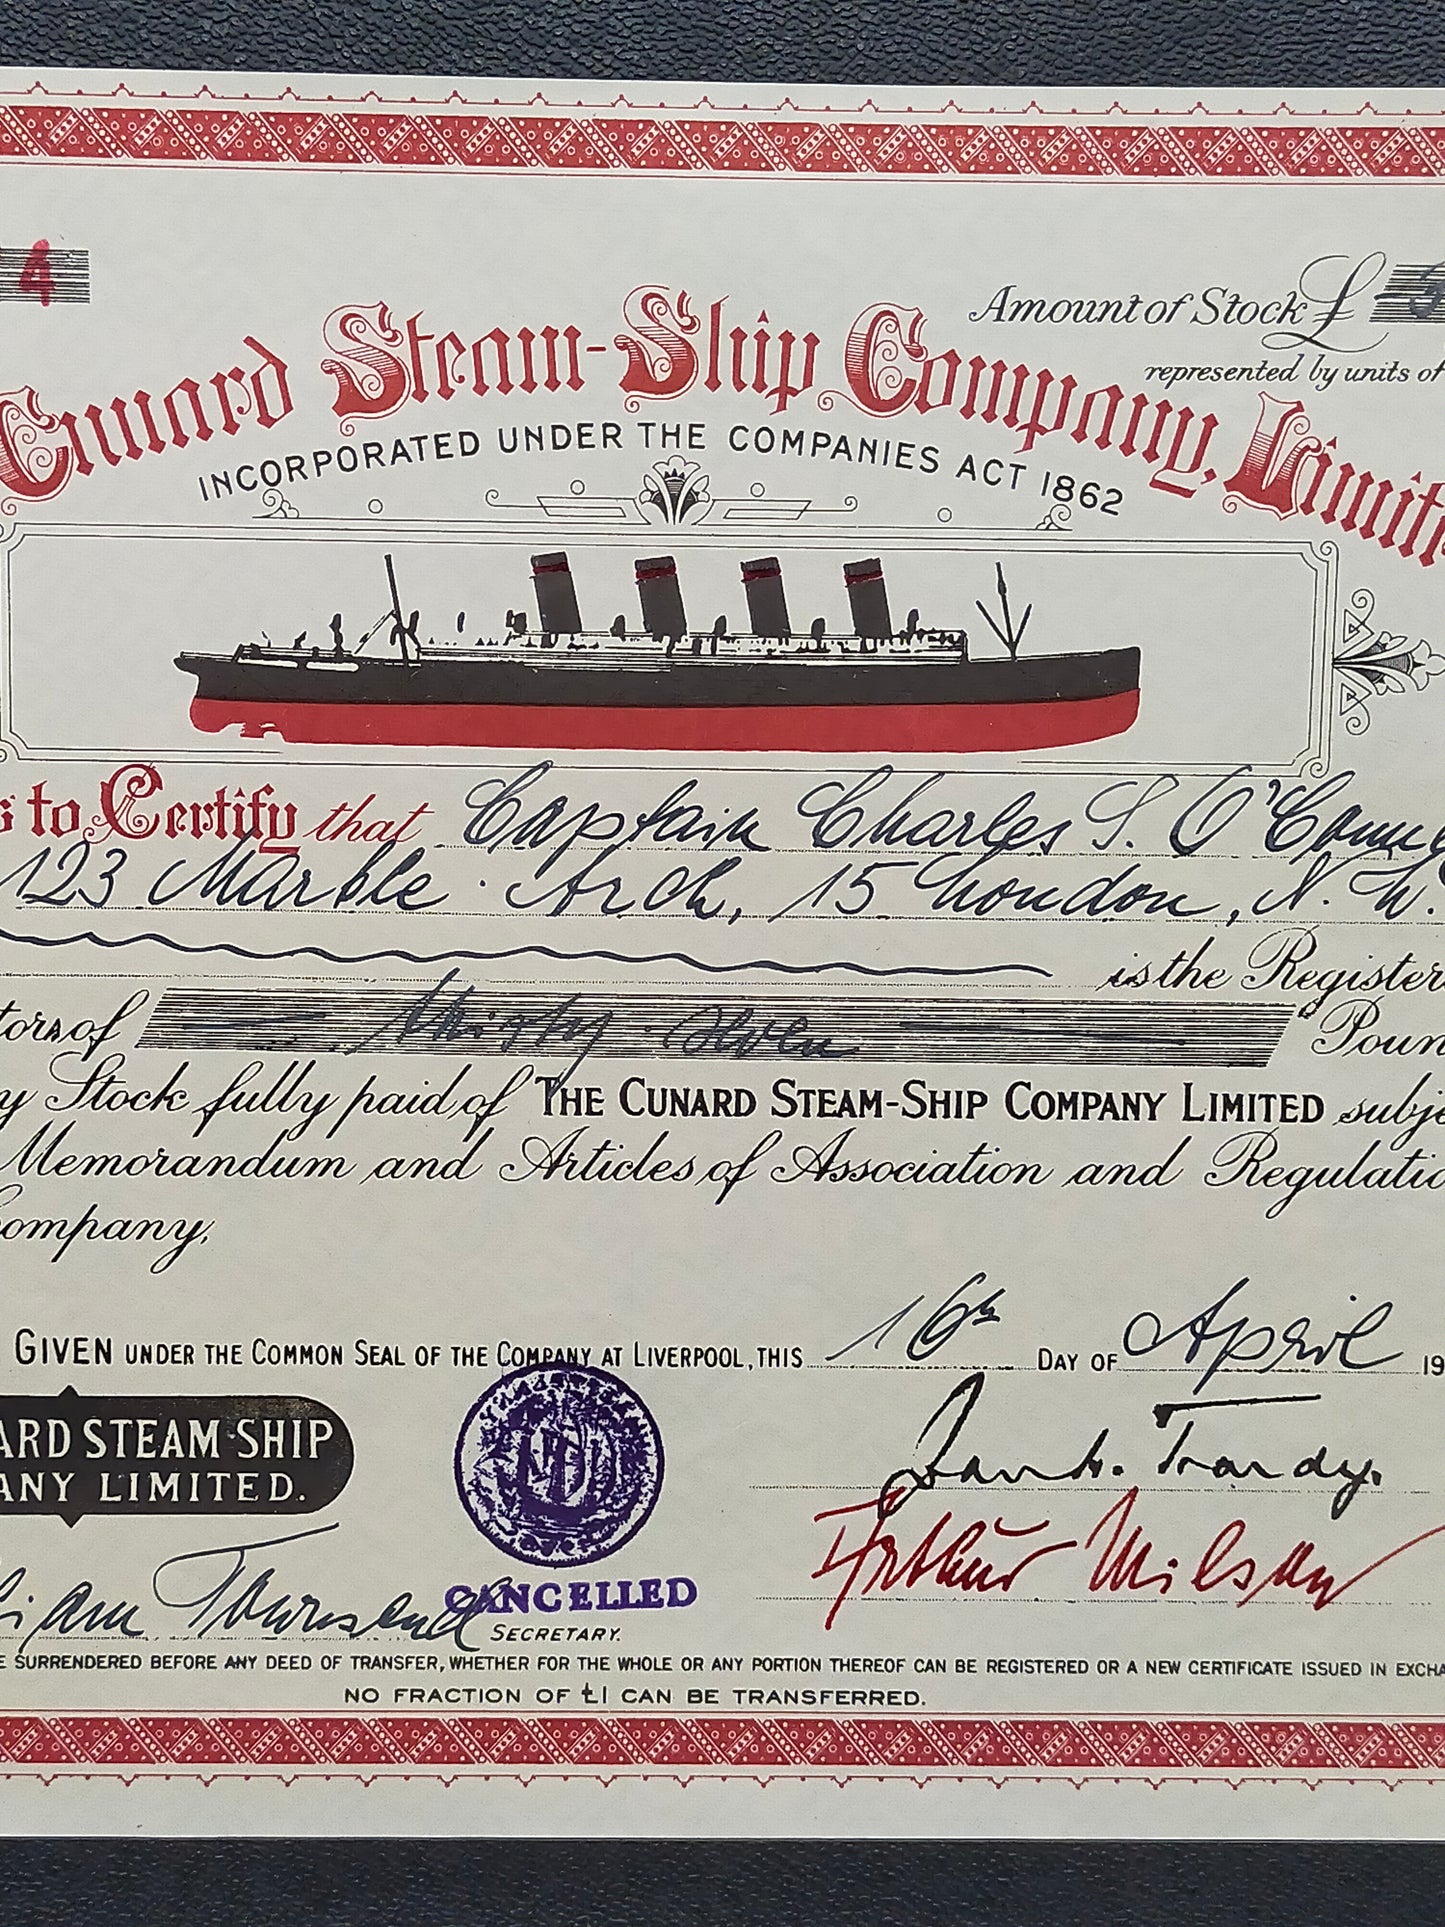 4
Amount of Stock £
represented by units of
Cunard Steam-Ship Company, Limit
INCORPORATED UNDER THE COMPANIES ACT 1862
s to Certify that Captain Charles S. O'Conne
123 Marble Arch, 15 London, N. W.
is the Register
tors of Thirty Seven Poun
y Stock fully paid of THE CUNARD STEAM-SHIP COMPANY LIMITED subje
Memorandum and Articles of Association and Regulatio
ompany,
GIVEN UNDER THE COMMON SEAL OF THE COMPANY AT LIVERPOOL, THIS 16th DAY OF April 19
ARD STEAM-SHIP
ANY LIMITED.
Trardy.
Arthur Wilson
iam Townsend
CANCELLED
SECRETARY.
E SURRENDERED BEFORE ANY DEED OF TRANSFER, WHETHER FOR THE WHOLE OR ANY PORTION THEREOF CAN BE REGISTERED OR A NEW CERTIFICATE ISSUED IN EXCHA
NO FRACTION OF £1 CAN BE TRANSFERRED.